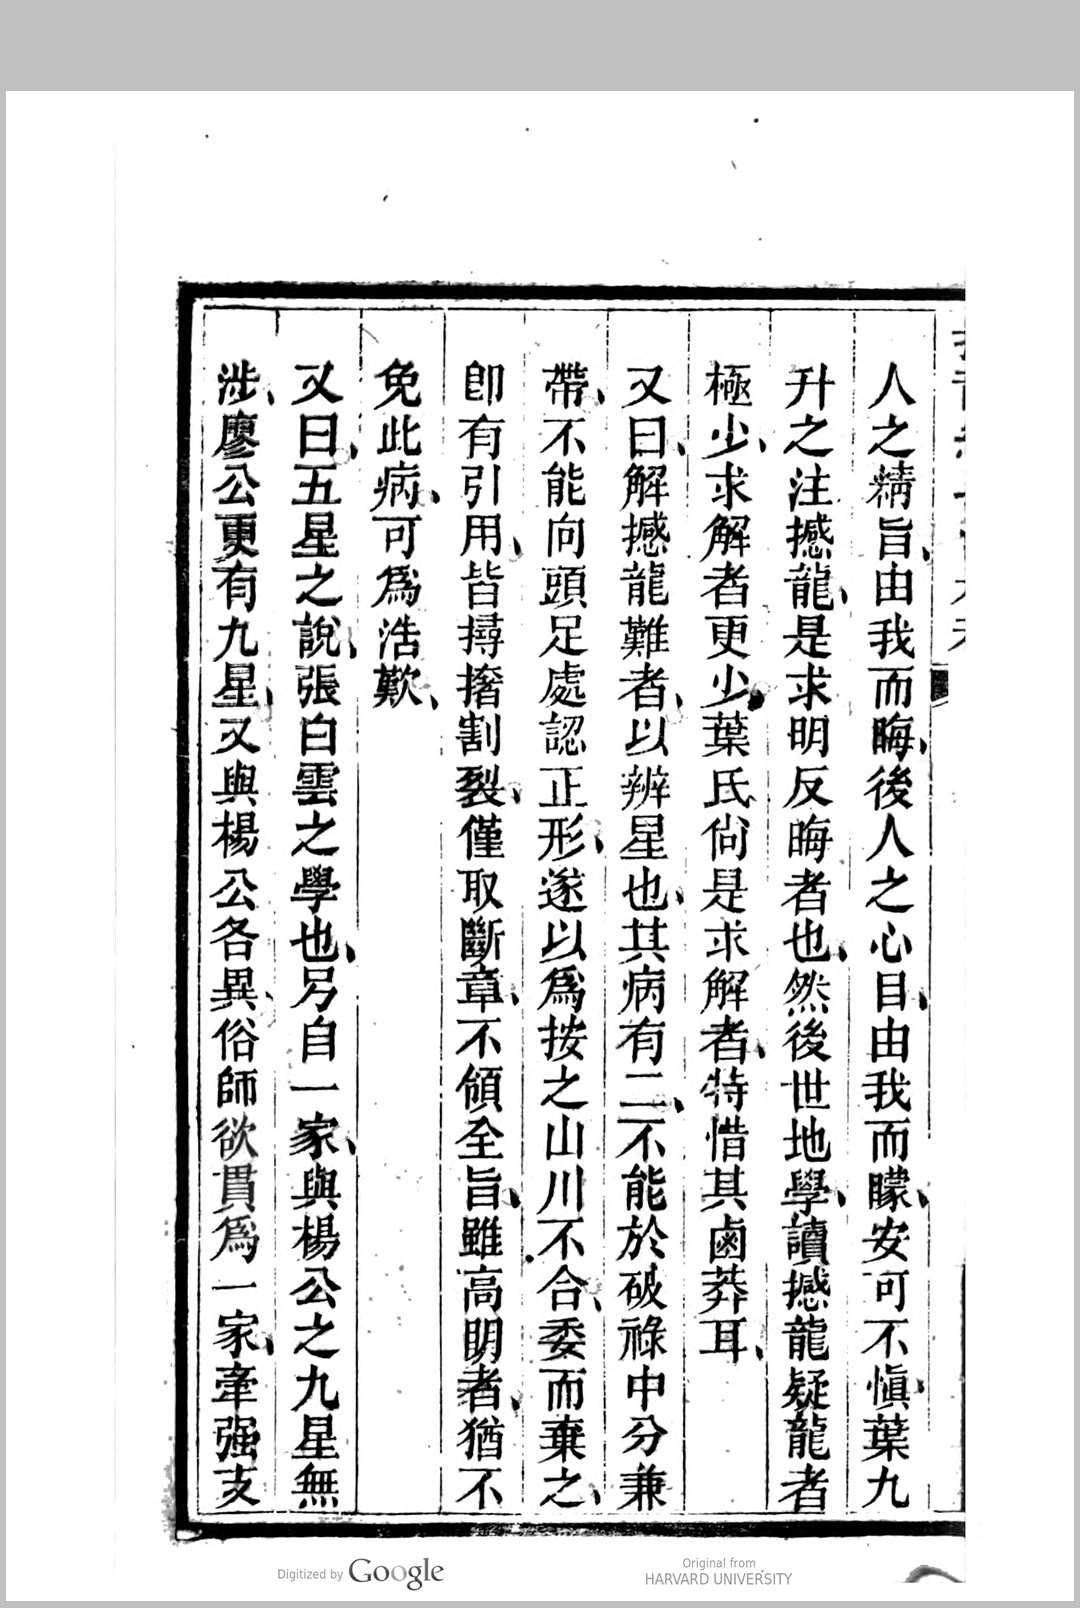 人之精旨、由我而晦、後人之心目、由我而矇、安可不慎葉九
升之注撼龍、是求明反晦者也、然後世地學、讀撼龍疑龍者
極少、求解者更少、葉氏尙是求解者、特惜其鹵莽耳、
又曰、解撼龍難者、以辨星也、其病有二、不能於破祿中分兼
帶、不能向頭足處認正形、遂以爲按之山川不合、委而棄之、
卽有引用、皆撏撦割裂、僅取斷章、不領全旨、雖高明者、猶不
免此病、可爲浩歎、
又曰、五星之說、張白雲之學也、另自一家、與楊公之九星無
涉、廖公更有九星、又與楊公各異、俗師欲貫爲一家、牽强支
Digitized by Google
Original from
HARVARD UNIVERSITY